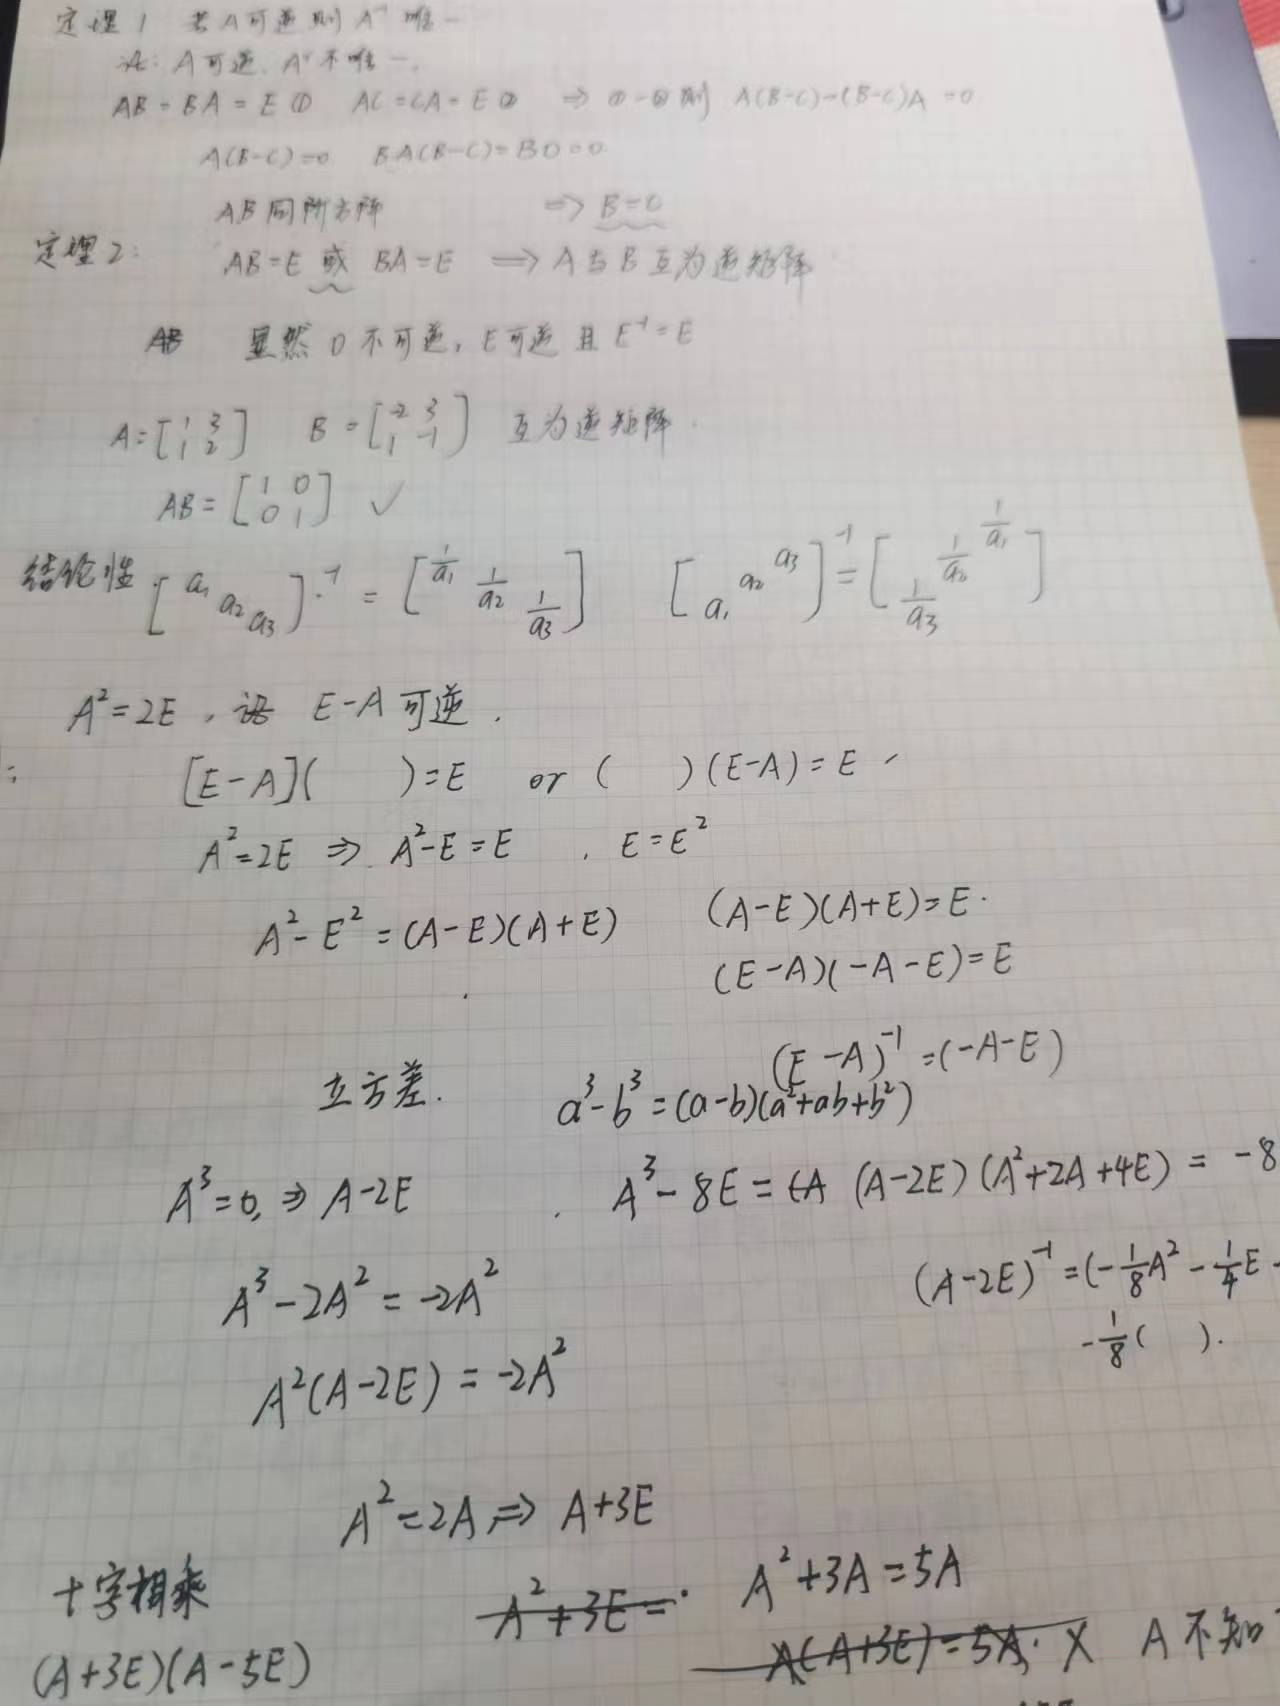 定理1 若A可逆则A⁻¹唯一
证: A可逆, A⁻¹不唯一.
AB=BA=E① AC=CA=E② ⇒ ①-②则 A(B-C)-(B-C)A=0
A(B-C)=0 BA(B-C)=B0=0
AB同阶方阵 ⇒ B=C
定理2: AB=E 或 BA=E ⇒ A与B互为逆矩阵
AB 显然 0不可逆, E可逆且 E⁻¹=E
A=[1 3; 1 2] B=[-2 3; 1 -1] 互为逆矩阵.
AB=[1 0; 0 1] ✓
结论性 [a₁ a₂ a₃]⁻¹ = [1/a₁ 1/a₂ 1/a₃] [a₁ a₂ a₃]⁻¹ = [1/a₃ 1/a₂ 1/a₁]
A²=2E, E-A可逆.
[E-A]( )=E or ( )(E-A)=E
A²=2E ⇒ A²-E=E , E=E²
A²-E²=(A-E)(A+E) (A-E)(A+E)=E.
(E-A)(-A-E)=E
(E-A)⁻¹=(-A-E)
立方差. a³-b³=(a-b)(a²+ab+b²)
A³=0, ⇒ A-2E . A³-8E=(A (A-2E)(A²+2A+4E)=-8
A³-2A²=-2A² (A-2E)⁻¹=(-1/8A²-1/4E-
-1/8( ).
A²(A-2E)=-2A²
A²=2A ⇒ A+3E
十字相乘 A²+3E= . A²+3A=5A
(A+3E)(A-5E) A(A+3E)=5A. X A不知